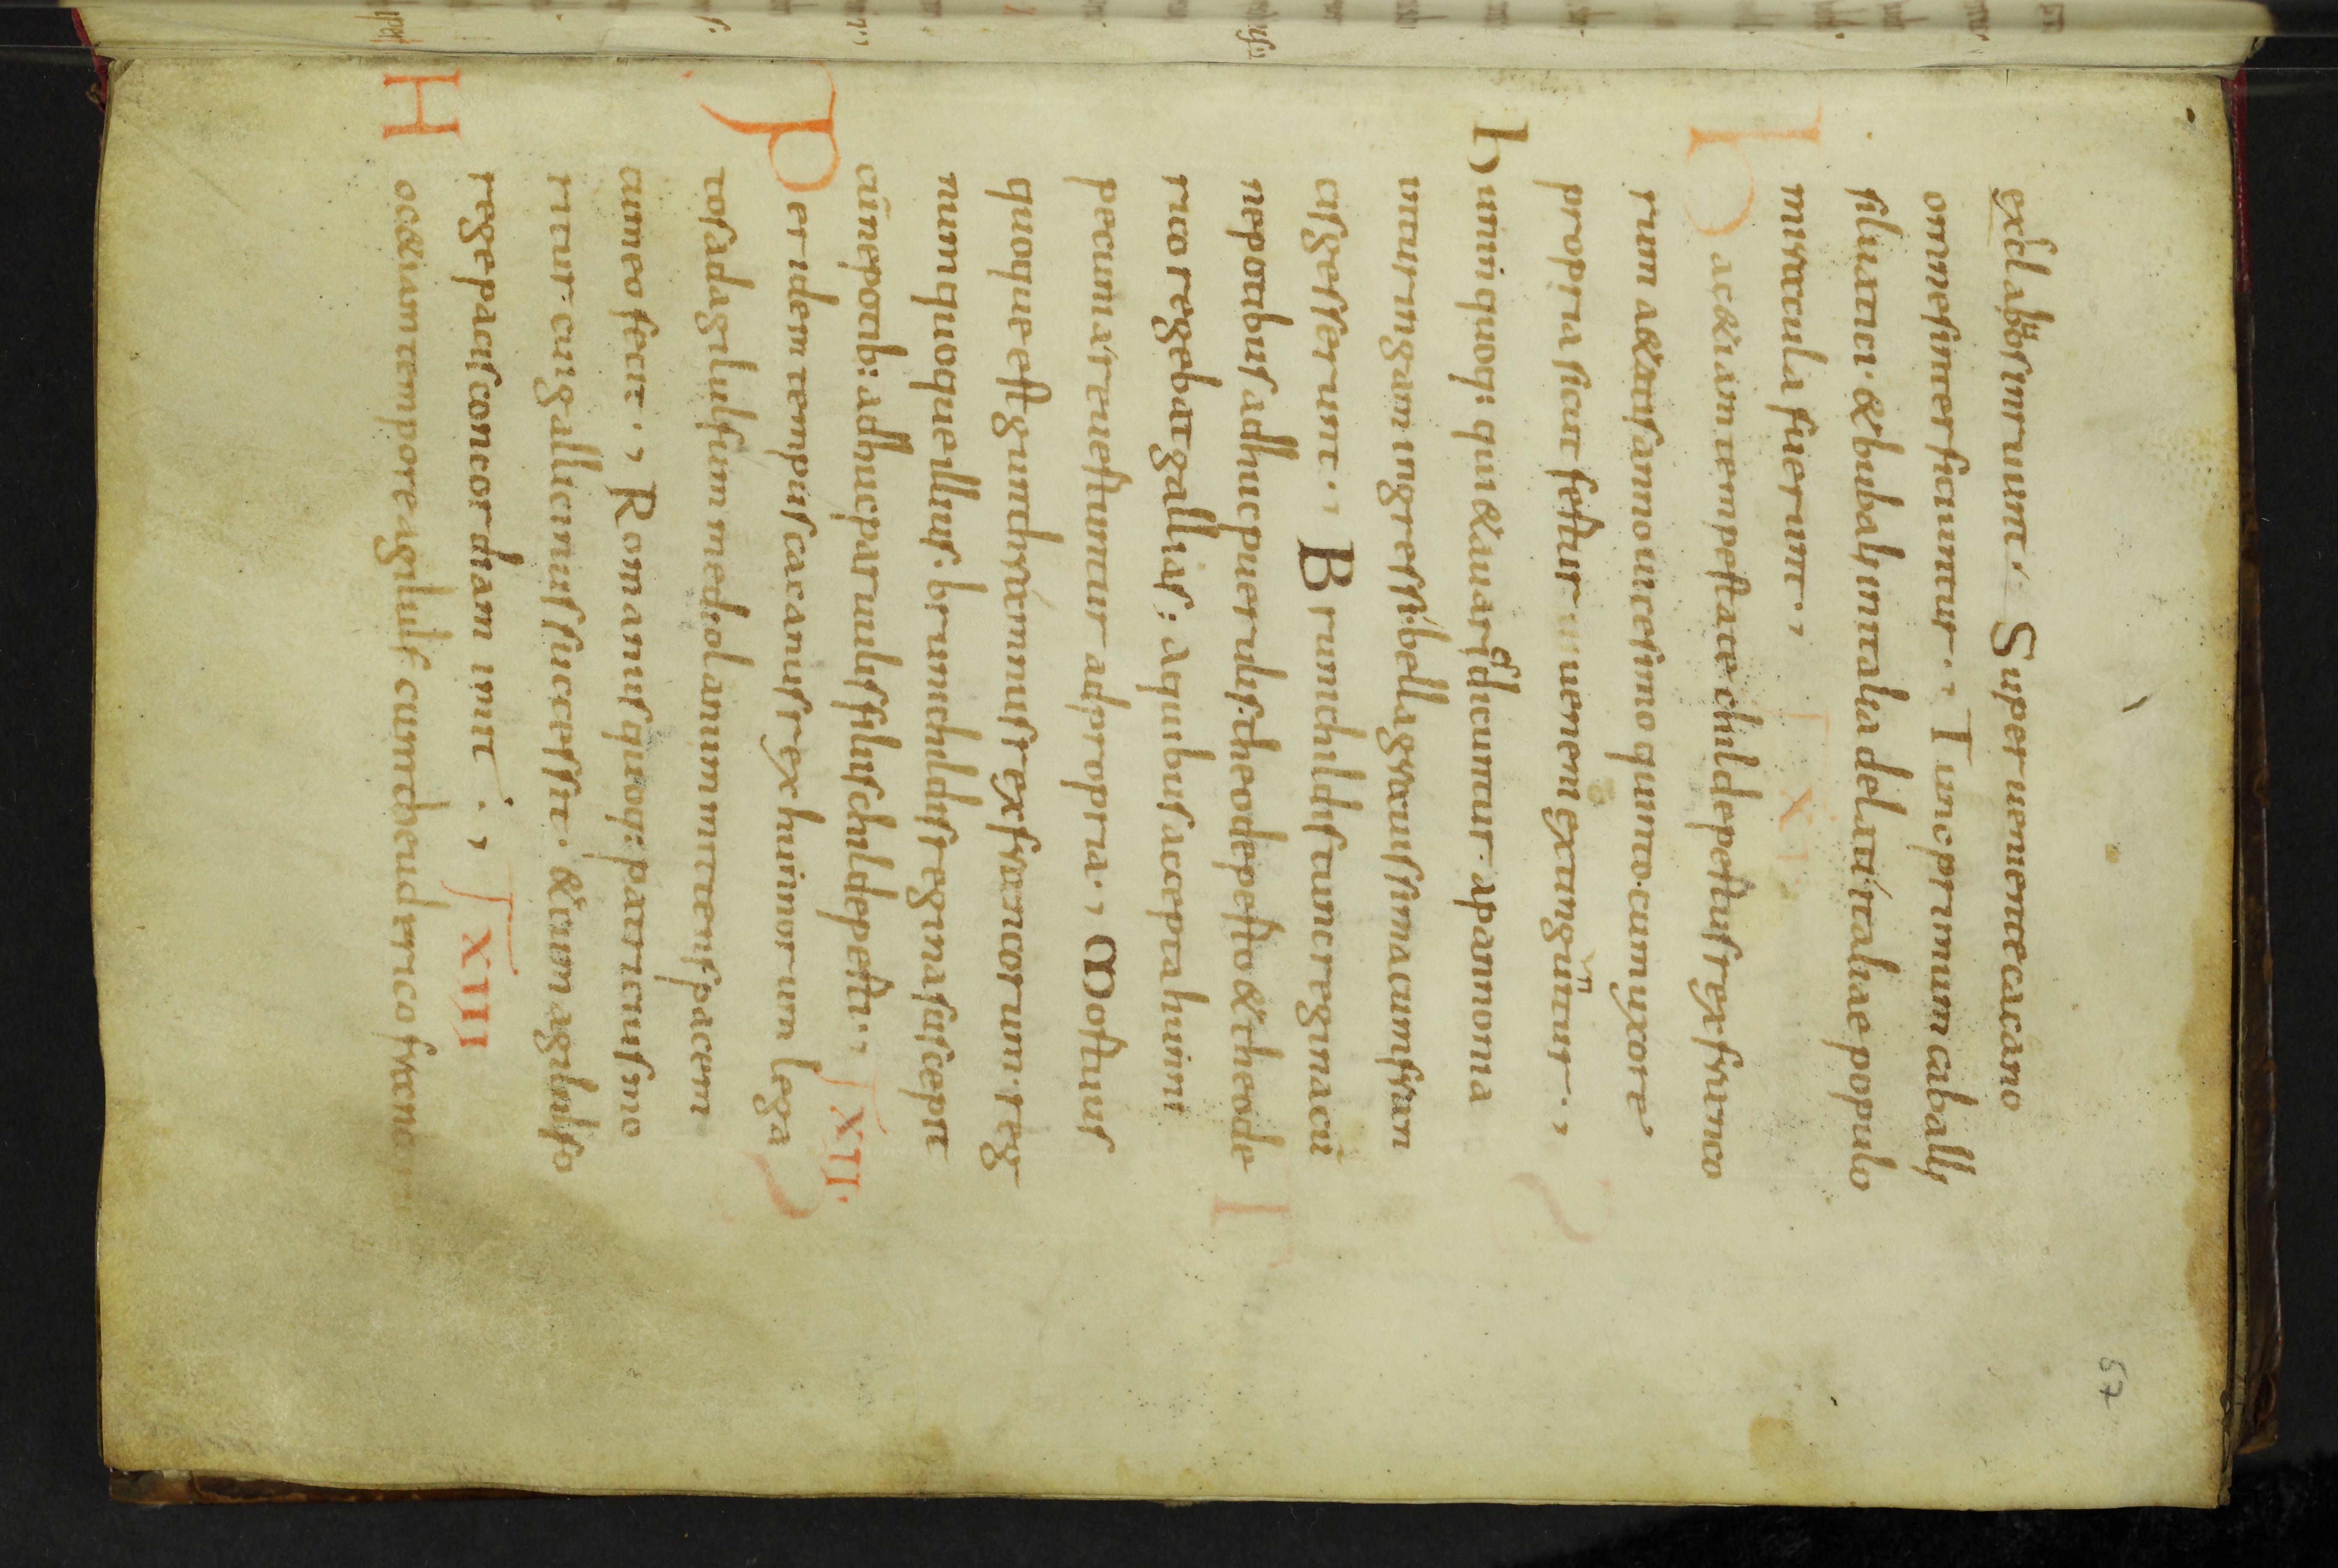 57
ex sclabis irruunt. Superueniente cacano
omnes interficiuntur. Tunc primum caballi
siluatici. & bubali in italia delati. italiae populo
miracula fuerunt.
XI
Hac &iam tempestate childepertus rex franco
rum a&atis anno uicesimo quinto. cum uxore
propria sicut fertur ueneni extinguitur.
Hunni quoq: qui & auares dicuntur. a pannonia
in turingam ingressi. bella grauissima cum fran
cis gesserunt. Brunichildis tunc regina cū
nepotibus adhuc puerulis. theodeperto & theode
rico regebat gallias: a quibus accepta hunni
pecunia reuertuntur ad propria. Mortuus
quoque est guntchramnus rex francorum. reg
numque illius. brunichildis regina suscepit
cū nepotib: adhuc paruulis filiis childeperti.
XII.
Per idem tempus cacanus rex hunnorum lega
tos ad agilulfum mediolanium mittens pacem
cum eo fecit. Romanus quoq: patricius mo
ritur. cui gallicinus successit. & cum agilulfo
rege pacis concordiam iniit.
XIII
Hoc &iam tempore agilulf. cum theuderico franco